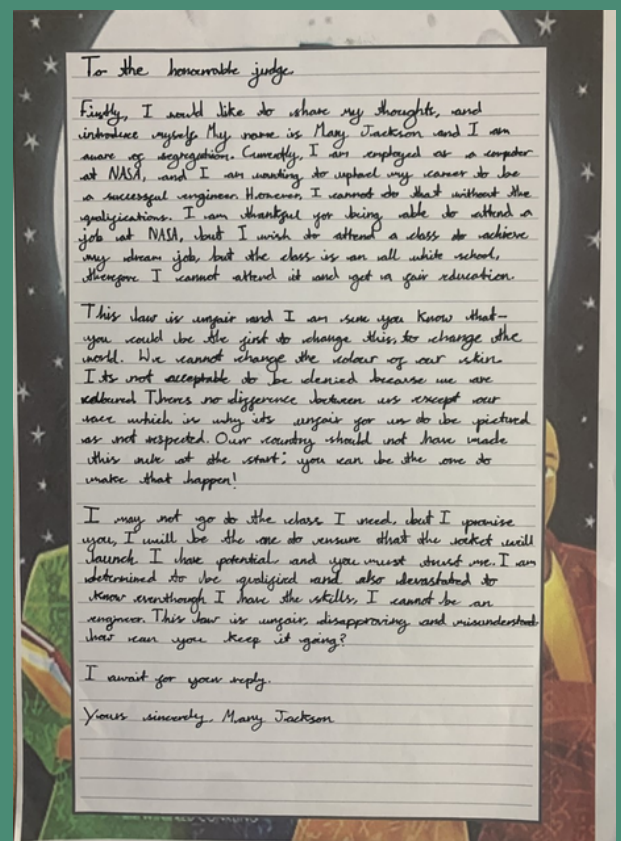 To the honourable judge,
Firstly, I would like to share my thoughts, and
introduce myself. My name is Mary Jackson and I am
aware of segregation. Currently, I am employed as a computer
at NASA, and I am wanting to my career to be
a successful engineer. However, I cannot do that without the
qualifications. I am thankful for being able to attend a
job at NASA, but I wish to attend a class to achieve
my dream job, but the class is an all white school,
therefore I cannot attend it and get a fair education.
This law is unfair and I am sure you know that-
you could be the first to change this, to change the
world. We cannot change the colour of our skin
Its not acceptable to be denied because we are
coloured Theres no difference between us except our
race which is why its unfair for us to be pictured
as not respected. Our country should not have made
this rule at the start; you can be the one to
make that happen!
I may not go to the class I need, but I promise
you, I will be the one to ensure that the rocket will
launch. I have potential and you must trust me. I am
determined to be qualified and also devastated to
know eventhough I have the skills, I cannot be an
engineer. This law is unfair, disapproving and misunderstood
how can you keep it going?
I await for your reply.
Yours sincerely, Mary Jackson